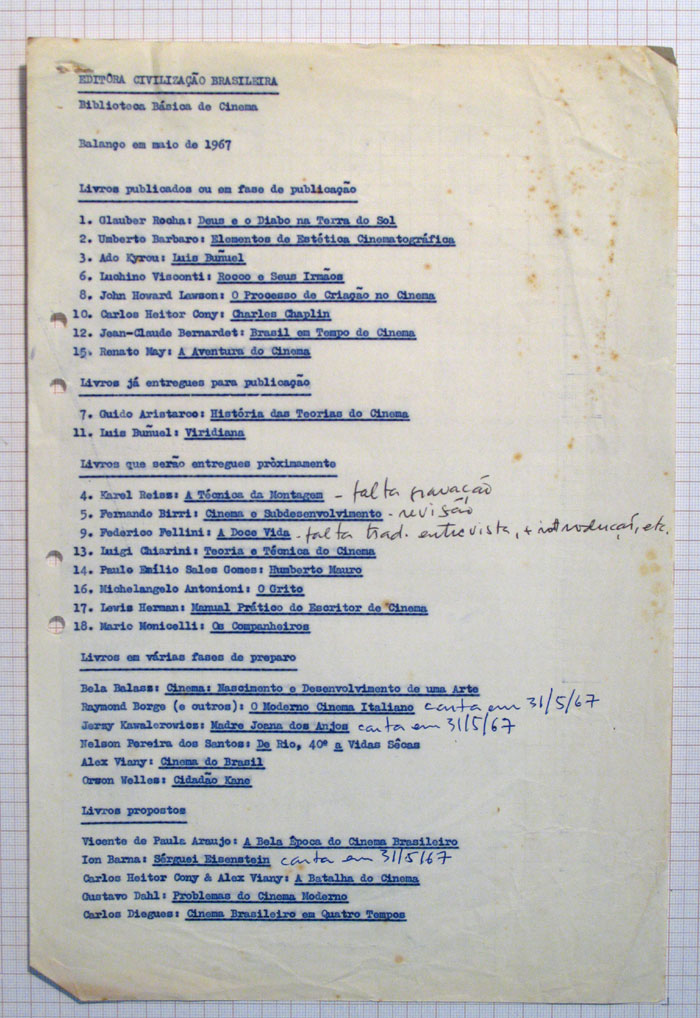 EDITÔRA CIVILIZAÇÃO BRASILEIRA
Biblioteca Básica de Cinema
Balanço em maio de 1967
Livros publicados ou em fase de publicação
1. Glauber Rocha: Deus e o Diabo na Terra do Sol
2. Umberto Barbaro: Elementos de Estética Cinematográfica
3. Ado Kyrou: Luis Buñuel
6. Luchino Visconti: Rocco e Seus Irmãos
8. John Howard Lawson: O Processo de Criação no Cinema
10. Carlos Heitor Cony: Charles Chaplin
12. Jean-Claude Bernardet: Brasil em Tempo de Cinema
15. Renato May: A Aventura do Cinema
Livros já entregues para publicação
7. Guido Aristarco: História das Teorias do Cinema
11. Luis Buñuel: Viridiana
Livros que serão entregues pròximamente
4. Karel Reisz: A Técnica da Montagem - falta gravação
5. Fernando Birri: Cinema e Subdesenvolvimento - revisão
9. Federico Fellini: A Doce Vida - falta trad. entrevista, + introdução, etc.
13. Luigi Chiarini: Teoria e Técnica do Cinema
14. Paulo Emílio Sales Gomes: Humberto Mauro
16. Michelangelo Antonioni: O Grito
17. Lewis Herman: Manual Prático do Escritor de Cinema
18. Mario Monicelli: Os Companheiros
Livros em várias fases de preparo
Bela Balasz: Cinema: Nascimento e Desenvolvimento de uma Arte
Raymond Borge (e outros): O Moderno Cinema Italiano carta em 31/5/67
Jerzy Kawalerowicz: Madre Joana dos Anjos carta em 31/5/67
Nelson Pereira dos Santos: De Rio, 40º a Vidas Sêcas
Alex Viany: Cinema do Brasil
Orson Welles: Cidadão Kane
Livros propostos
Vicente de Paula Araujo: A Bela Época do Cinema Brasileiro
Ion Barna: Sérguei Eisenstein carta em 31/5/67
Carlos Heitor Cony & Alex Viany: A Batalha do Cinema
Gustavo Dahl: Problemas do Cinema Moderno
Carlos Diegues: Cinema Brasileiro em Quatro Tempos